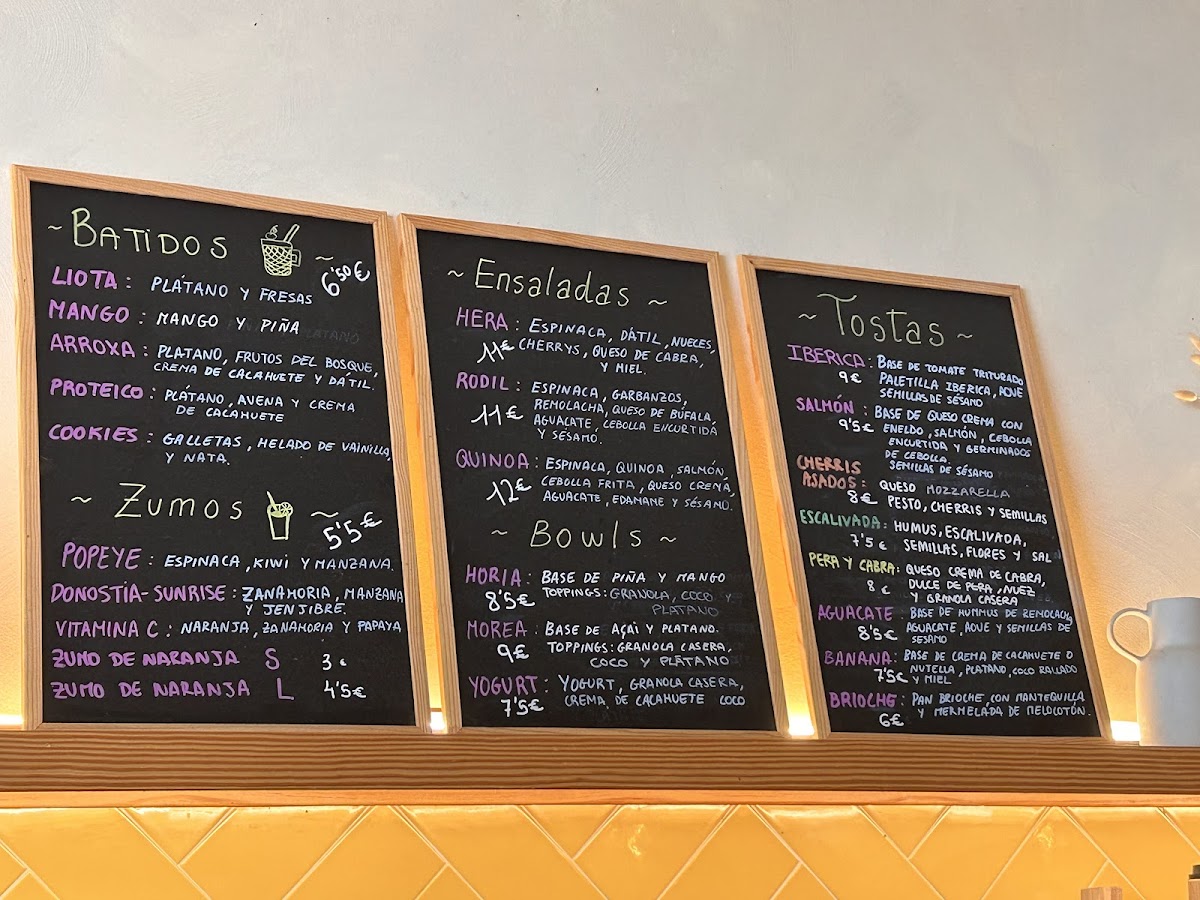 ~ BATIDOS ~
6'50€
LIOTA: PLÁTANO Y FRESAS
MANGO: MANGO Y PIÑA
ARROXA: PLATANO, FRUTOS DEL BOSQUE,
CREMA DE CACAHUETE Y DÁTIL.
PROTEICO: PLÁTANO, AVENA Y CREMA
DE CACAHUETE
COOKIES: GALLETAS, HELADO DE VAINILLA,
Y NATA.
~ ZUMOS ~
5'5€
POPEYE: ESPINACA, KIWI Y MANZANA.
DONOSTIA-SUNRISE: ZANAHORIA, MANZANA
Y JENJIBRE.
VITAMINA C: NARANJA, ZANAHORIA Y PAPAYA
ZUMO DE NARANJA S 3€
ZUMO DE NARANJA L 4'5€
~ Ensaladas ~
HERA: ESPINACA, DÁTIL, NUECES,
11€ CHERRYS, QUESO DE CABRA,
Y MIEL.
RODIL: ESPINACA, GARBANZOS,
REMOLACHA, QUESO DE BÚFALA,
11€ AGUACATE, CEBOLLA ENCURTIDA
Y SÉSAMO.
QUINOA: ESPINACA, QUINOA, SALMÓN,
12€ CEBOLLA FRITA, QUESO CREMA,
AGUACATE, EDAMAME Y SÉSAMO.
~ Bowls ~
HORIA: BASE DE PIÑA Y MANGO
8'5€ TOPPINGS: GRANOLA, COCO Y
PLATANO
MOREA: BASE DE AÇAI Y PLATANO.
9€ TOPPINGS: GRANOLA CASERA,
COCO Y PLÁTANO
YOGURT: YOGURT, GRANOLA CASERA,
7'5€ CREMA DE CACAHUETE COCO
~ Tostas ~
IBERICA: BASE DE TOMATE TRITURADO
9€ PALETILLA IBERICA, AOVE
SEMILLAS DE SÉSAMO
SALMÓN: BASE DE QUESO CREMA CON
9'5€ ENELDO, SALMÓN, CEBOLLA
ENCURTIDA Y GERMINADOS
DE CEBOLLA.
SEMILLAS DE SÉSAMO
CHERRIS
ASADOS: QUESO MOZZARELLA
8€ PESTO, CHERRIS Y SEMILLAS
ESCALIVADA: HUMUS, ESCALIVADA,
7'5€ SEMILLAS, FLORES Y SAL
PERA Y CABRA: QUESO CREMA DE CABRA,
8€ DULCE DE PERA, NUEZ
Y GRANOLA CASERA
AGUACATE BASE DE HUMMUS DE REMOLACHA
8'5€ AGUACATE, AOVE Y SEMILLAS DE
SESAMO
BANANA: BASE DE CREMA DE CACAHUETE O
7'5€ NUTELLA, PLATANO, COCO RALLADO
Y MIEL
BRIOCHE: PAN BRIOCHE, CON MANTEQUILLA
6€ Y MERMELADA DE MELOCOTÓN.